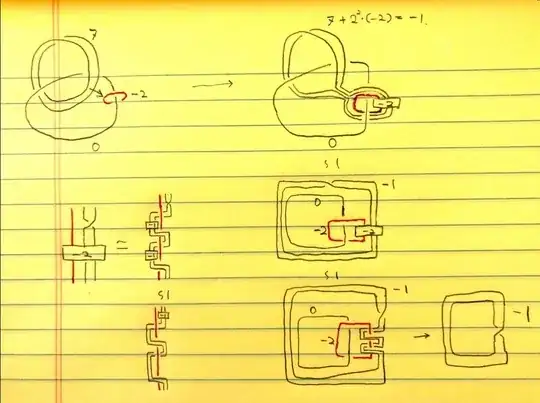 7
7 + 2²·(-2) = -1.
-2
-2
0
0
S1
-1
0
-2
-2
-2
=
S1
S1
-1
0
-2
-1